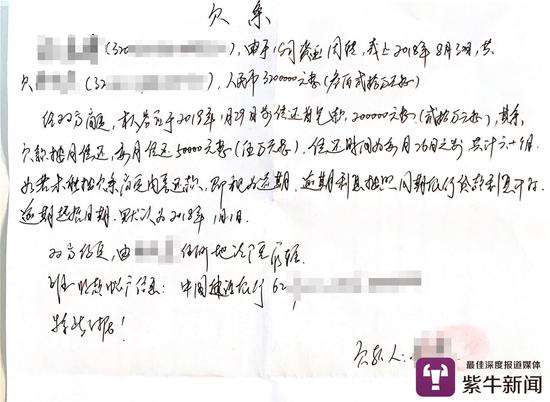 欠条
(320 ),由于公司资金周转,我至2018年8月3日,共
欠 (32 ),人民币320000元整(叁佰贰拾万元整)
经双方商定,本人应于2018年 月29日前偿还首笔款,200000元整(贰拾万元整),其余
欠款按月偿还,每月偿还50000元整(伍万元整),偿还时间为每月26日之前 共计六十个月.
如若未能按欠条约定内容还款,即视为逾期,逾期利息按照同期银行贷款利息计算.
逾期起始日期,默认为2018年1月1日.
双方约定,由 住所地法院管辖.
账户信息:中国建设银行62
特此 据!
欠款人:
最佳深度报道媒体
紫牛新闻